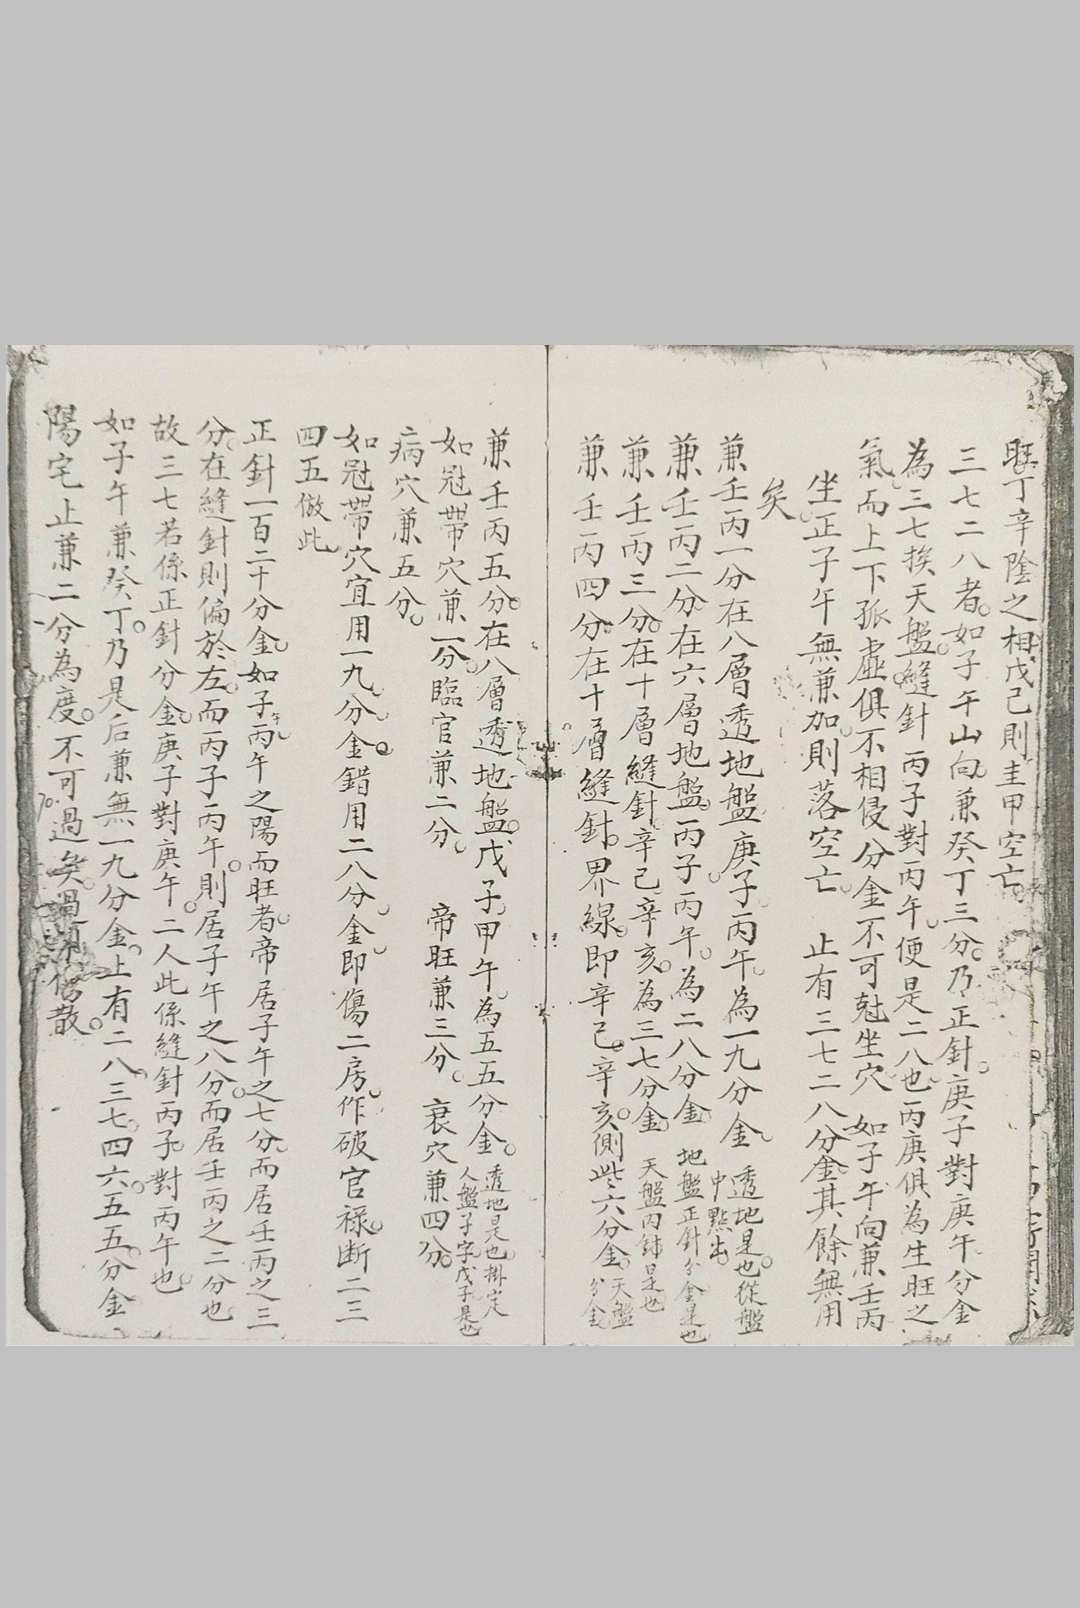 旺丁辛陰之相戊己則圭甲空亡
三七二八者如子午山向兼癸丁三分乃正針庚子對庚午分金
為三七挨天盤縫針丙子對丙午便是二八也丙庚俱為生旺之
氣而上下孤虛俱不相侵分金不可尅坐穴 如子午向兼壬丙
坐正子午無兼加則落空亡 止有三七二八分金其餘無用
矣
兼壬丙一分在八層透地盤庚子丙午為一九分金 透地是也從盤中點出
兼壬丙二分在六層地盤丙子丙午為二八分金 地盤正針分金是也
兼壬丙三分在十層縫針辛己辛亥為三七分金 天盤內針是也
兼壬丙四分在十層縫針界線即辛己辛亥側些六分金 天盤分金
兼壬丙五分在八層透地盤戊子甲午為五五分金 透地是也掛定人盤子字戊子是也
如冠帶穴兼一分臨官兼二分 帝旺兼三分 衰穴兼四分
病穴兼五分
如冠帶穴宜用一九分金錯用二八分金即傷二房作破官祿断二三
四五倣此
正針一百二十分金如子丙午之陽而旺者帝居子午之七分而居壬丙之三
分在縫針則偏於左而丙子丙午則居子午之八分而居壬丙之二分也
故三七若係正針分金庚子對庚午二人此係縫針丙子對丙午也
如子午兼癸丁乃是后兼無一九分金上有二八三七四六五五分金
陽宅止兼二分為度不可過矣過散